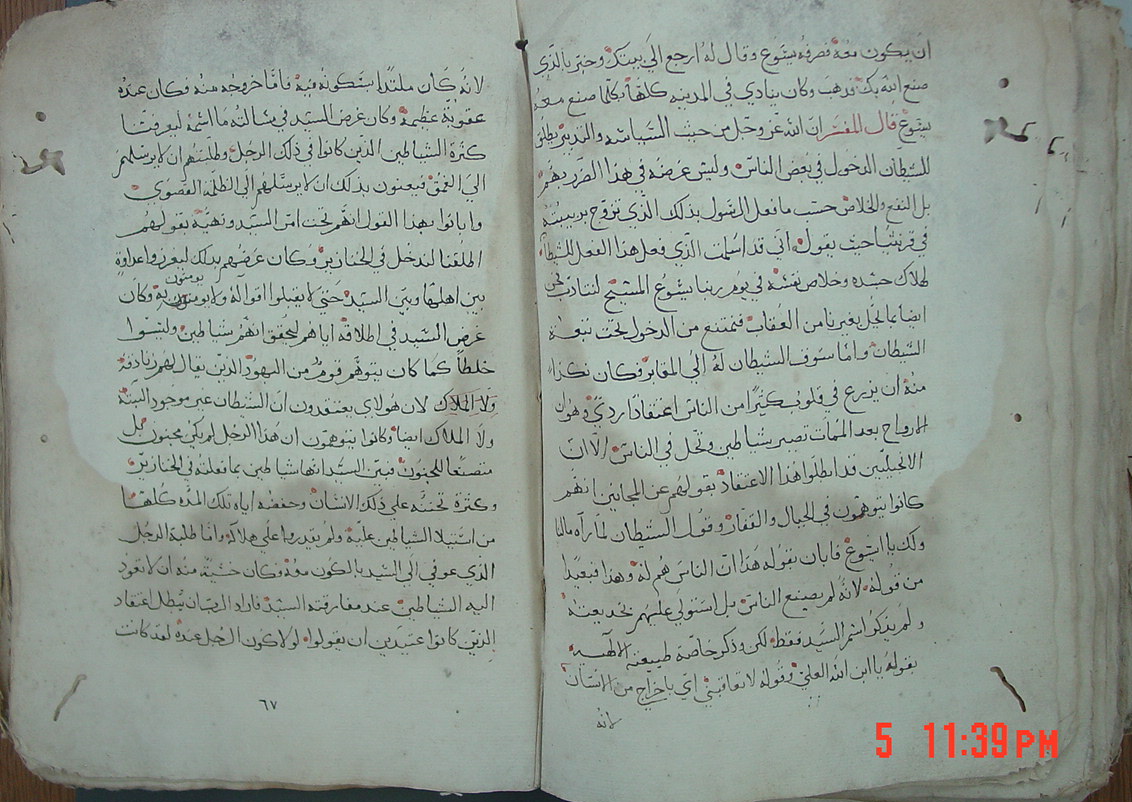 ان يكون معه فصرفه يسوع وقال له ارجع الى بيتك وخبر بالذي
صنع الله بك فذهب وكان ينادي في المدينه كلها بكلما صنع معه
يسوع قال المفسر ان الله عز وجل من حيث السياسه والتدبير يطلق
للشيطان الدخول في بعض الناس وليس غرضه في هذا الضرر بهم
بل النفع والخلاص حسب ما فعل الرسول بذلك الذي تزوج بربيبته
في قرنثيا حيث يقول اني قد اسلمت الذي فعل هذا الفعل للشيطان
لهلاك جسده وخلاص نفسه في يوم ربنا يسوع المسيح لنتادب نحن
ايضا بما يحل بغيرنا من العقاب فنمتنع من الدخول تحت تبعة
الشيطان واما سوف الشيطان له الى المقابر فكان نكرا
منه ان يزرع في قلوب كثيرا من الناس اعتقادا ردي وهو ان
الارواح بعد الممات تصير شياطين وتحل في الناس الا ان
الانجيليين قد ابطلوا هذا الاعتقاد بقولهم عن المجانين انهم
كانوا يتوهمون في الجبال والقفار وقول الشيطان لما رآه مالنا
ولك يا ايسوع فابان بقوله هذا ان الناس هم له وهذا فبعيدا
من قوله لانه لم يصنع الناس بل استولى عليهم بخديعته
ولم يذكر اسم السيد فقط لكن وذكر خاصة طبيعته الالهيه
بقوله يا ابن الله العلي وقوله لا تعاقبني اي باخراج من الانسان
لانه
لانه كان ملتدا بسكونه فيه فاما خروجه منه فكان عنده
عقوبة عظيمة وكان غرض السيد في مسالته ما اسمه ليعرفنا
كثرة الشياطين الذين كانوا في ذلك الرجل وطلبتهم ان لا يرسلهم
الى العمق فيعنون بذلك ان لا يرسلهم الى الظلمه القصوى
وابانوا بهذا القول انهم تحت امر السيد ونهيه بقولهم
اطلقنا لندخل في الخنازير وكان غرضهم بذلك ليعرزوا عداوة
بين اهلها وبين السيد حتى لا يقبلوا اقواله ولا يومنون به وكان
يومنون
غرض السيد في اطلاقه اياهم ليحقق انهم شياطين وليسوا
خلطا كما كان يتوهم قوم من اليهود الذين يقال لهم زنادقه
ولا الملاك لان هولاي يعتقدون ان الشيطان غير موجود البته
ولا الملاك ايضا وكانوا يتوهون ان هذا الرجل لم يكن مجنون بل
متصنعا للجنون فبين السيد انها شياطين بما فعلته في الخنازير
وكثرة تحننه على ذلك الانسان وحفظه اياه تلك المده كلها
من استيلا الشياطين عليه ولم يقدروا على هلاكه واما طلبة الرجل
الذي عوفي الى السيد بالكون معه فكان خشية منه ان لا تعود
اليه الشياطين عند مفارقته السيد فاراد الرب ان يبطل اعتقاد
الذين كانوا عتيدين ان يقولوا لولا كون الرجل عنده لقد كانت
٦٧
5 11:39 PM